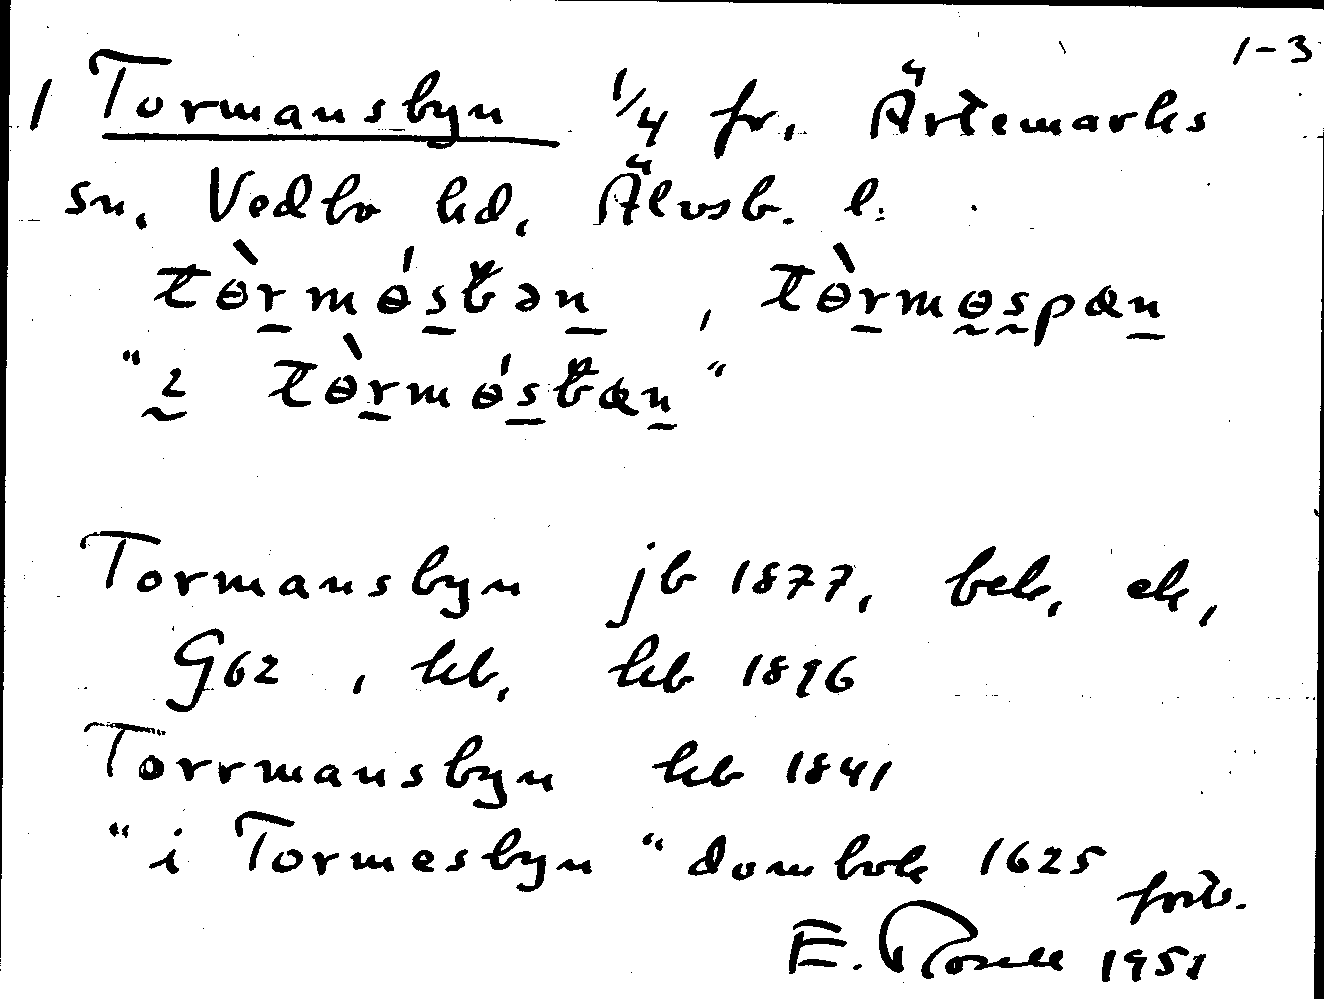 1-3
1 Tormansbyn 1/4 fr. Ärtemarks
sn. Vedbo hd, Älvsb. l.
tɵ̀rmɵ́sbən , tɵ̀rmɵspæn
"i tɵ̀rmɵ́sbæn"
Tormansbyn jb 1877, bek, ek,
G62, kb, kb 1896
Torrmansbyn kb 1841
"i Tormesbyn" dombok 1625
forts.
E. Rosell 1951